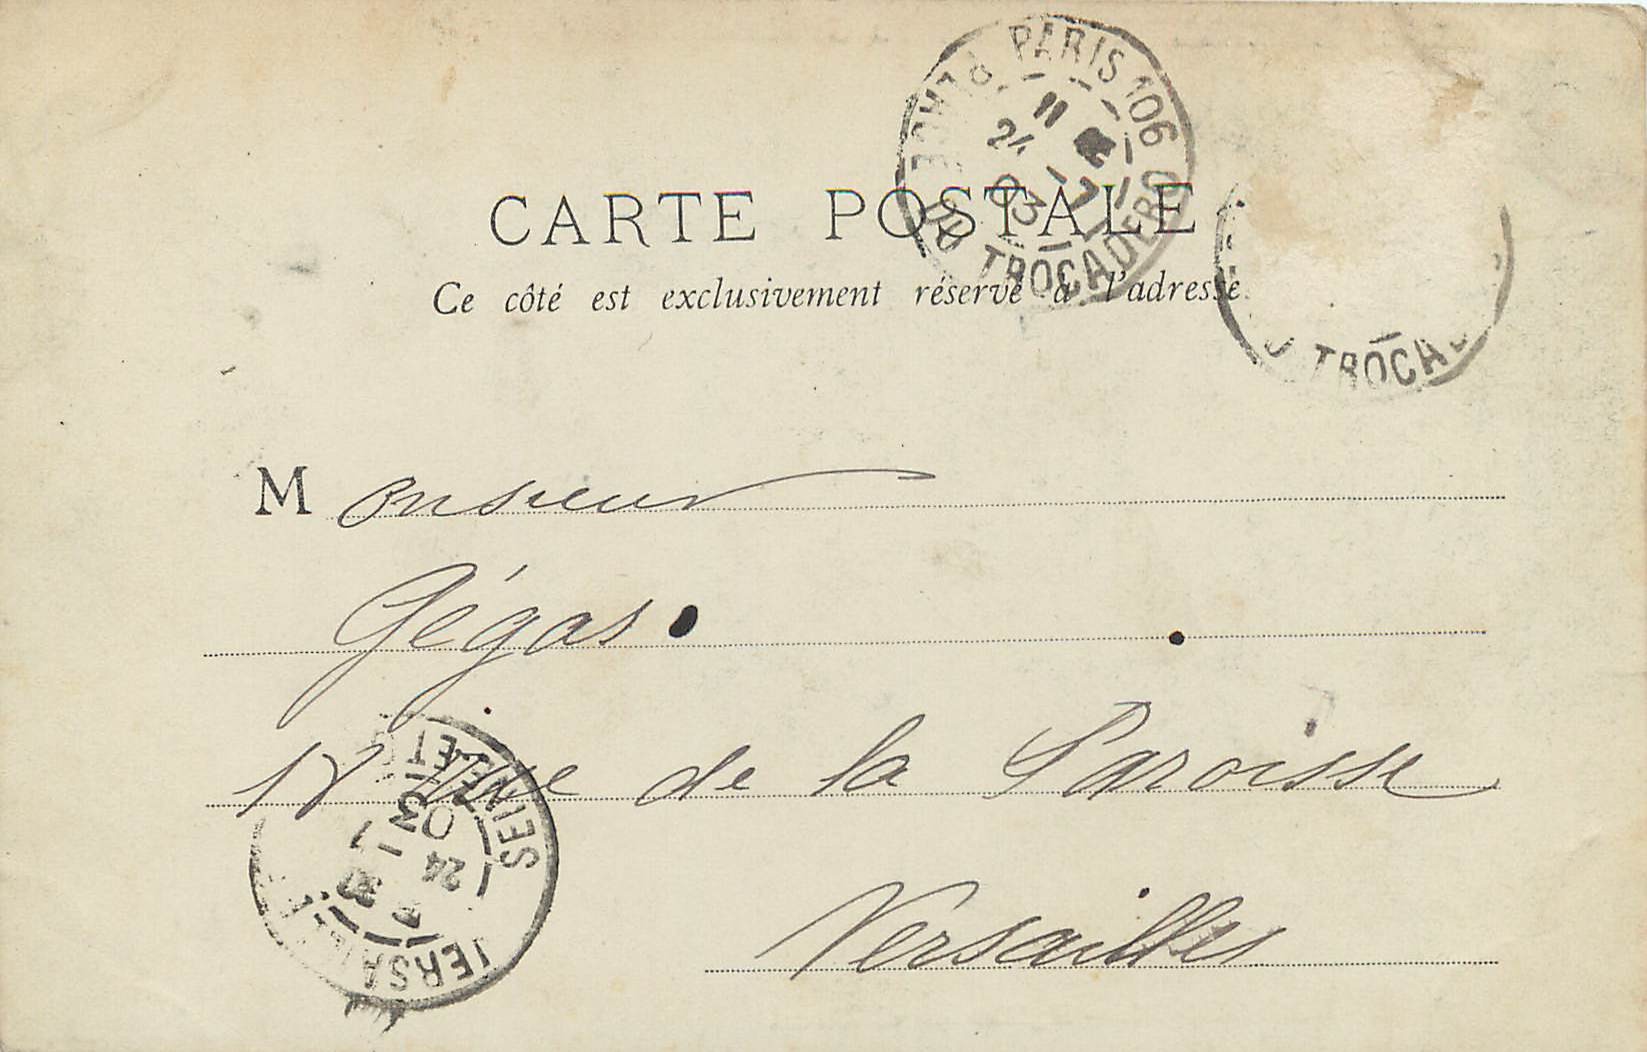 PARIS 106
PLACE DU TROCADERO
11
24 -7
03
CARTE POSTALE
Ce côté est exclusivement réservé à l'adresse
TROCA
Monsieur
Gégas
rue de la Paroisse
Versailles
SEINE ET O
24 -7
03